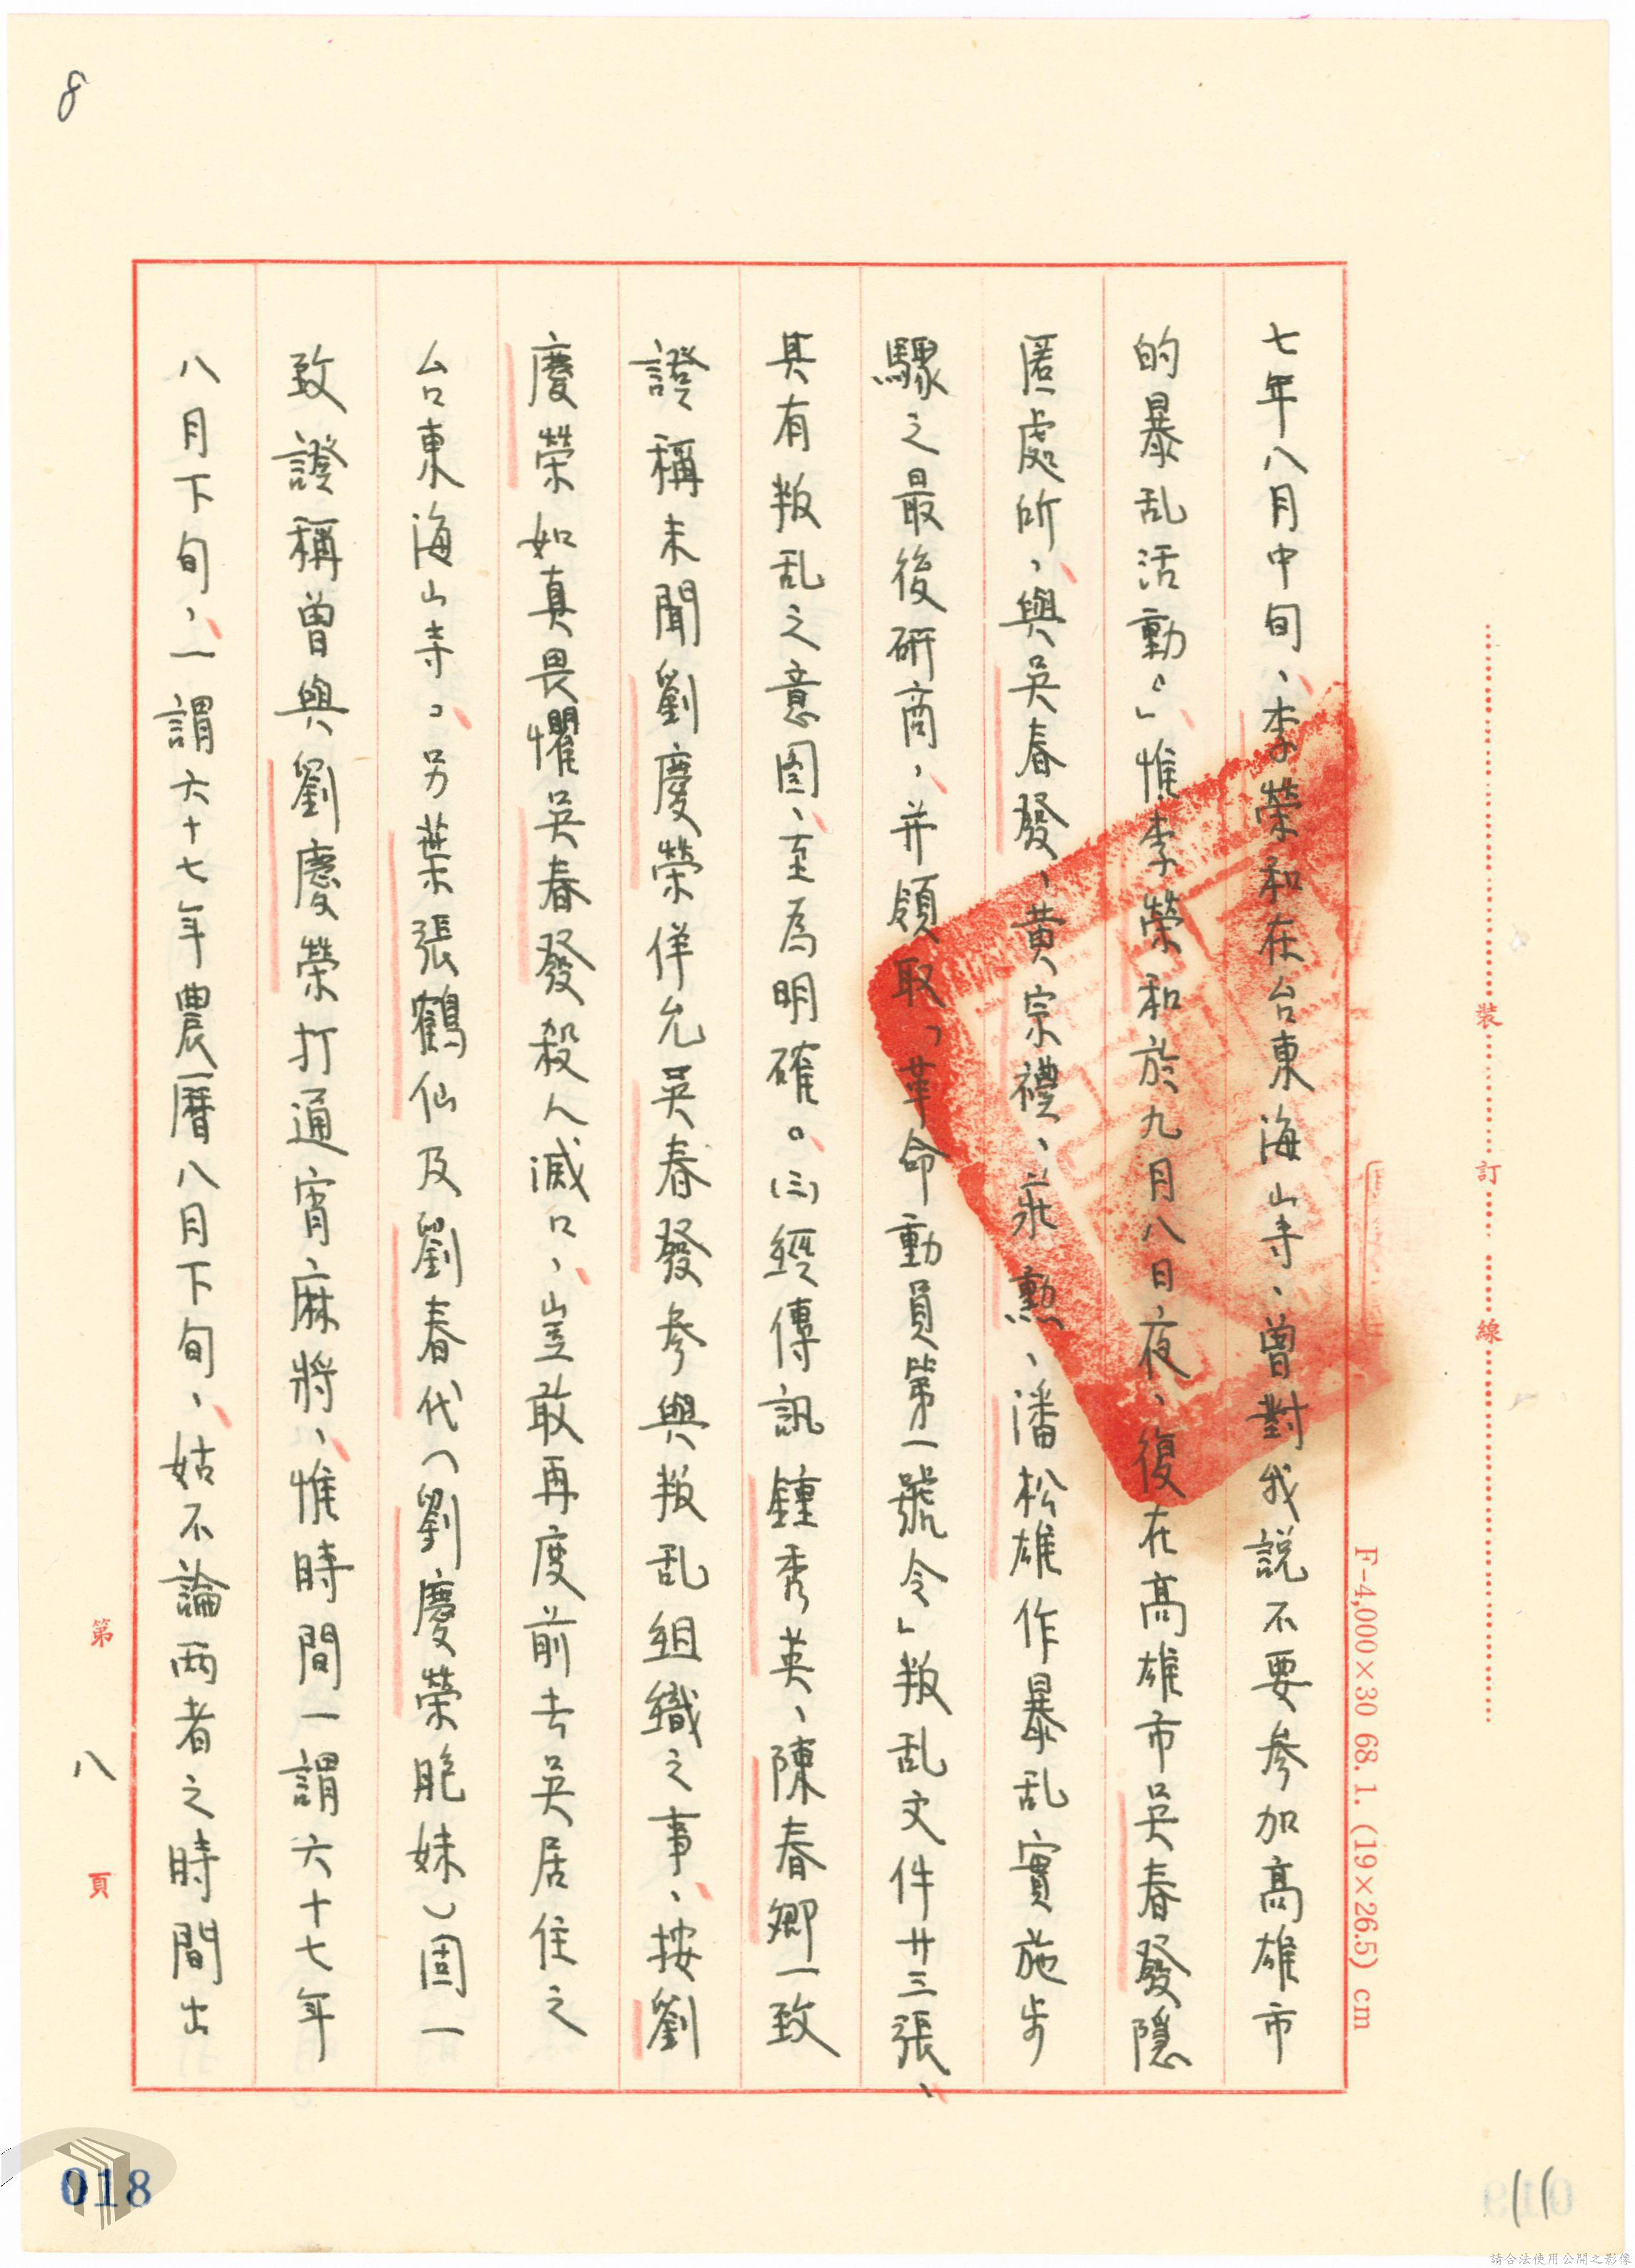 8
七年八月中旬、李榮和在台東海山寺、曾對我說不要參加高雄市
的暴乱活動。」惟李榮和於九月八日夜、復在高雄市吳春發隱
匿處所、與吳春發、黃宗禮、莊勲、潘松雄作暴乱實施步
驟之最後研商、并領取「革命動員第一號令」叛乱文件廿三張、
其有叛乱之意图、至為明確。(三)經傳訊鍾秀英、陳春鄉一致
證稱未聞劉慶榮佯允吳春發參與叛乱組織之事、按劉
慶榮如真畏懼吳春發殺人滅口、豈敢再度前去吳居住之
台東海山寺。另葉張鶴仙及劉春代(劉慶榮胞妹)固一
致證稱曾與劉慶榮打通宵麻將、惟時間一謂六十七年
八月下旬、一謂六十七年農曆八月下旬、姑不論两者之時間出
第八頁
裝訂線
F-4,000×30 68.1. (19×26.5) cm
018
請合法使用公開之影像